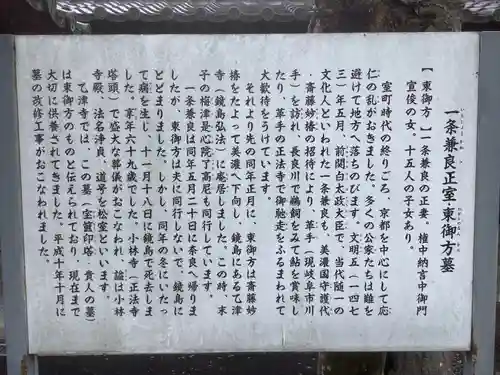 一条兼良正室・東御方墓
【東御方】一条兼良の正妻、権中納言中御門
宣俊の女、十五人の子女あり。
室町時代の終りごろ、京都を中心にして応
仁の乱がおきました。多くの公家たちは難を
避けて地方へ落ちのびます。文明五（一四七
三）年五月、前関白太政大臣で、当代随一の
文化人といわれた一条兼良も、美濃国守護代
・斎藤妙椿の招待により、革手（現岐阜市川
手）を訪れ、長良川で鵜飼をみて鮎を賞味し
たり、革手の正法寺で御馳走をふるまわれて
大歓待をうけています。
それより先の同年正月に、東御方は斎藤妙
椿をたよって美濃へ下向し、鏡島にある乙津
寺（鏡島弘法）に庵居しました。この時、末
子の梅津是心院了高尼も同行しています。
一条兼良は同年五月二十日に奈良へ帰りま
したが、東御方は夫に同行しないで、鏡島に
とどまりました。しかし、同年の冬にいたっ
て病を生じ、十一月十八日に鏡島で死去しま
した。享年六十九歳でした。小林寺（正法寺
塔頭）で盛大な葬儀がおこなわれ、謚は小林
寺殿、法名浄貞、道号を松室といいます。
乙津寺では、この墓（宝篋印塔・貴人の墓）
は東御方のものと伝えられており、現在まで
大切に供養されてきました。平成十年十月に
墓の改修工事がおこなわれました。